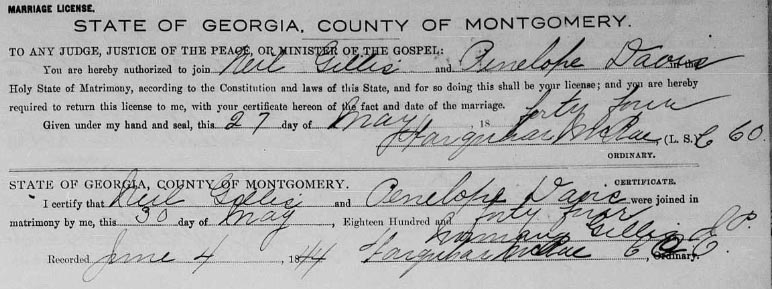 MARRIAGE LICENSE.
STATE OF GEORGIA, COUNTY OF MONTGOMERY.
TO ANY JUDGE, JUSTICE OF THE PEACE, OR MINISTER OF THE GOSPEL:
You are hereby authorized to join Neil Gillis and Penelope Davis in the
Holy State of Matrimony, according to the Constitution and laws of this State, and for so doing this shall be your license; and you are hereby
required to return this license to me, with your certificate hereon of the fact and date of the marriage.
Given under my hand and seal, this 27 day of May 18 forty four
Farquhar McRae, (L. S.) C C O.
ORDINARY.
CERTIFICATE.
STATE OF GEORGIA, COUNTY OF MONTGOMERY.
I certify that Neil Gillis and Penelope Davis were joined in
matrimony by me, this 30 day of May, Eighteen Hundred and forty four
Gillis J. P.
Recorded June 4 1844 Farquhar McRae C C O, Ordinary.